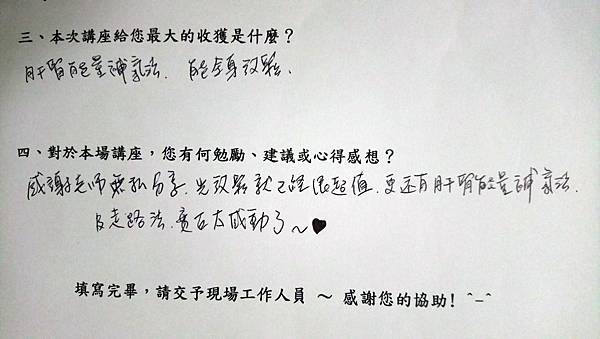 三、本次講座給您最大的收獲是什麼？
肝腎能量補氣法. 能全身放鬆.
四、對於本場講座，您有何勉勵、建議或心得感想？
感謝老師無私分享. 光放鬆就已經很超值. 更還有肝腎能量補氣法.
及走路法. 實在太感動了~♥
填寫完畢，請交予現場工作人員 ～ 感謝您的協助! ^-^